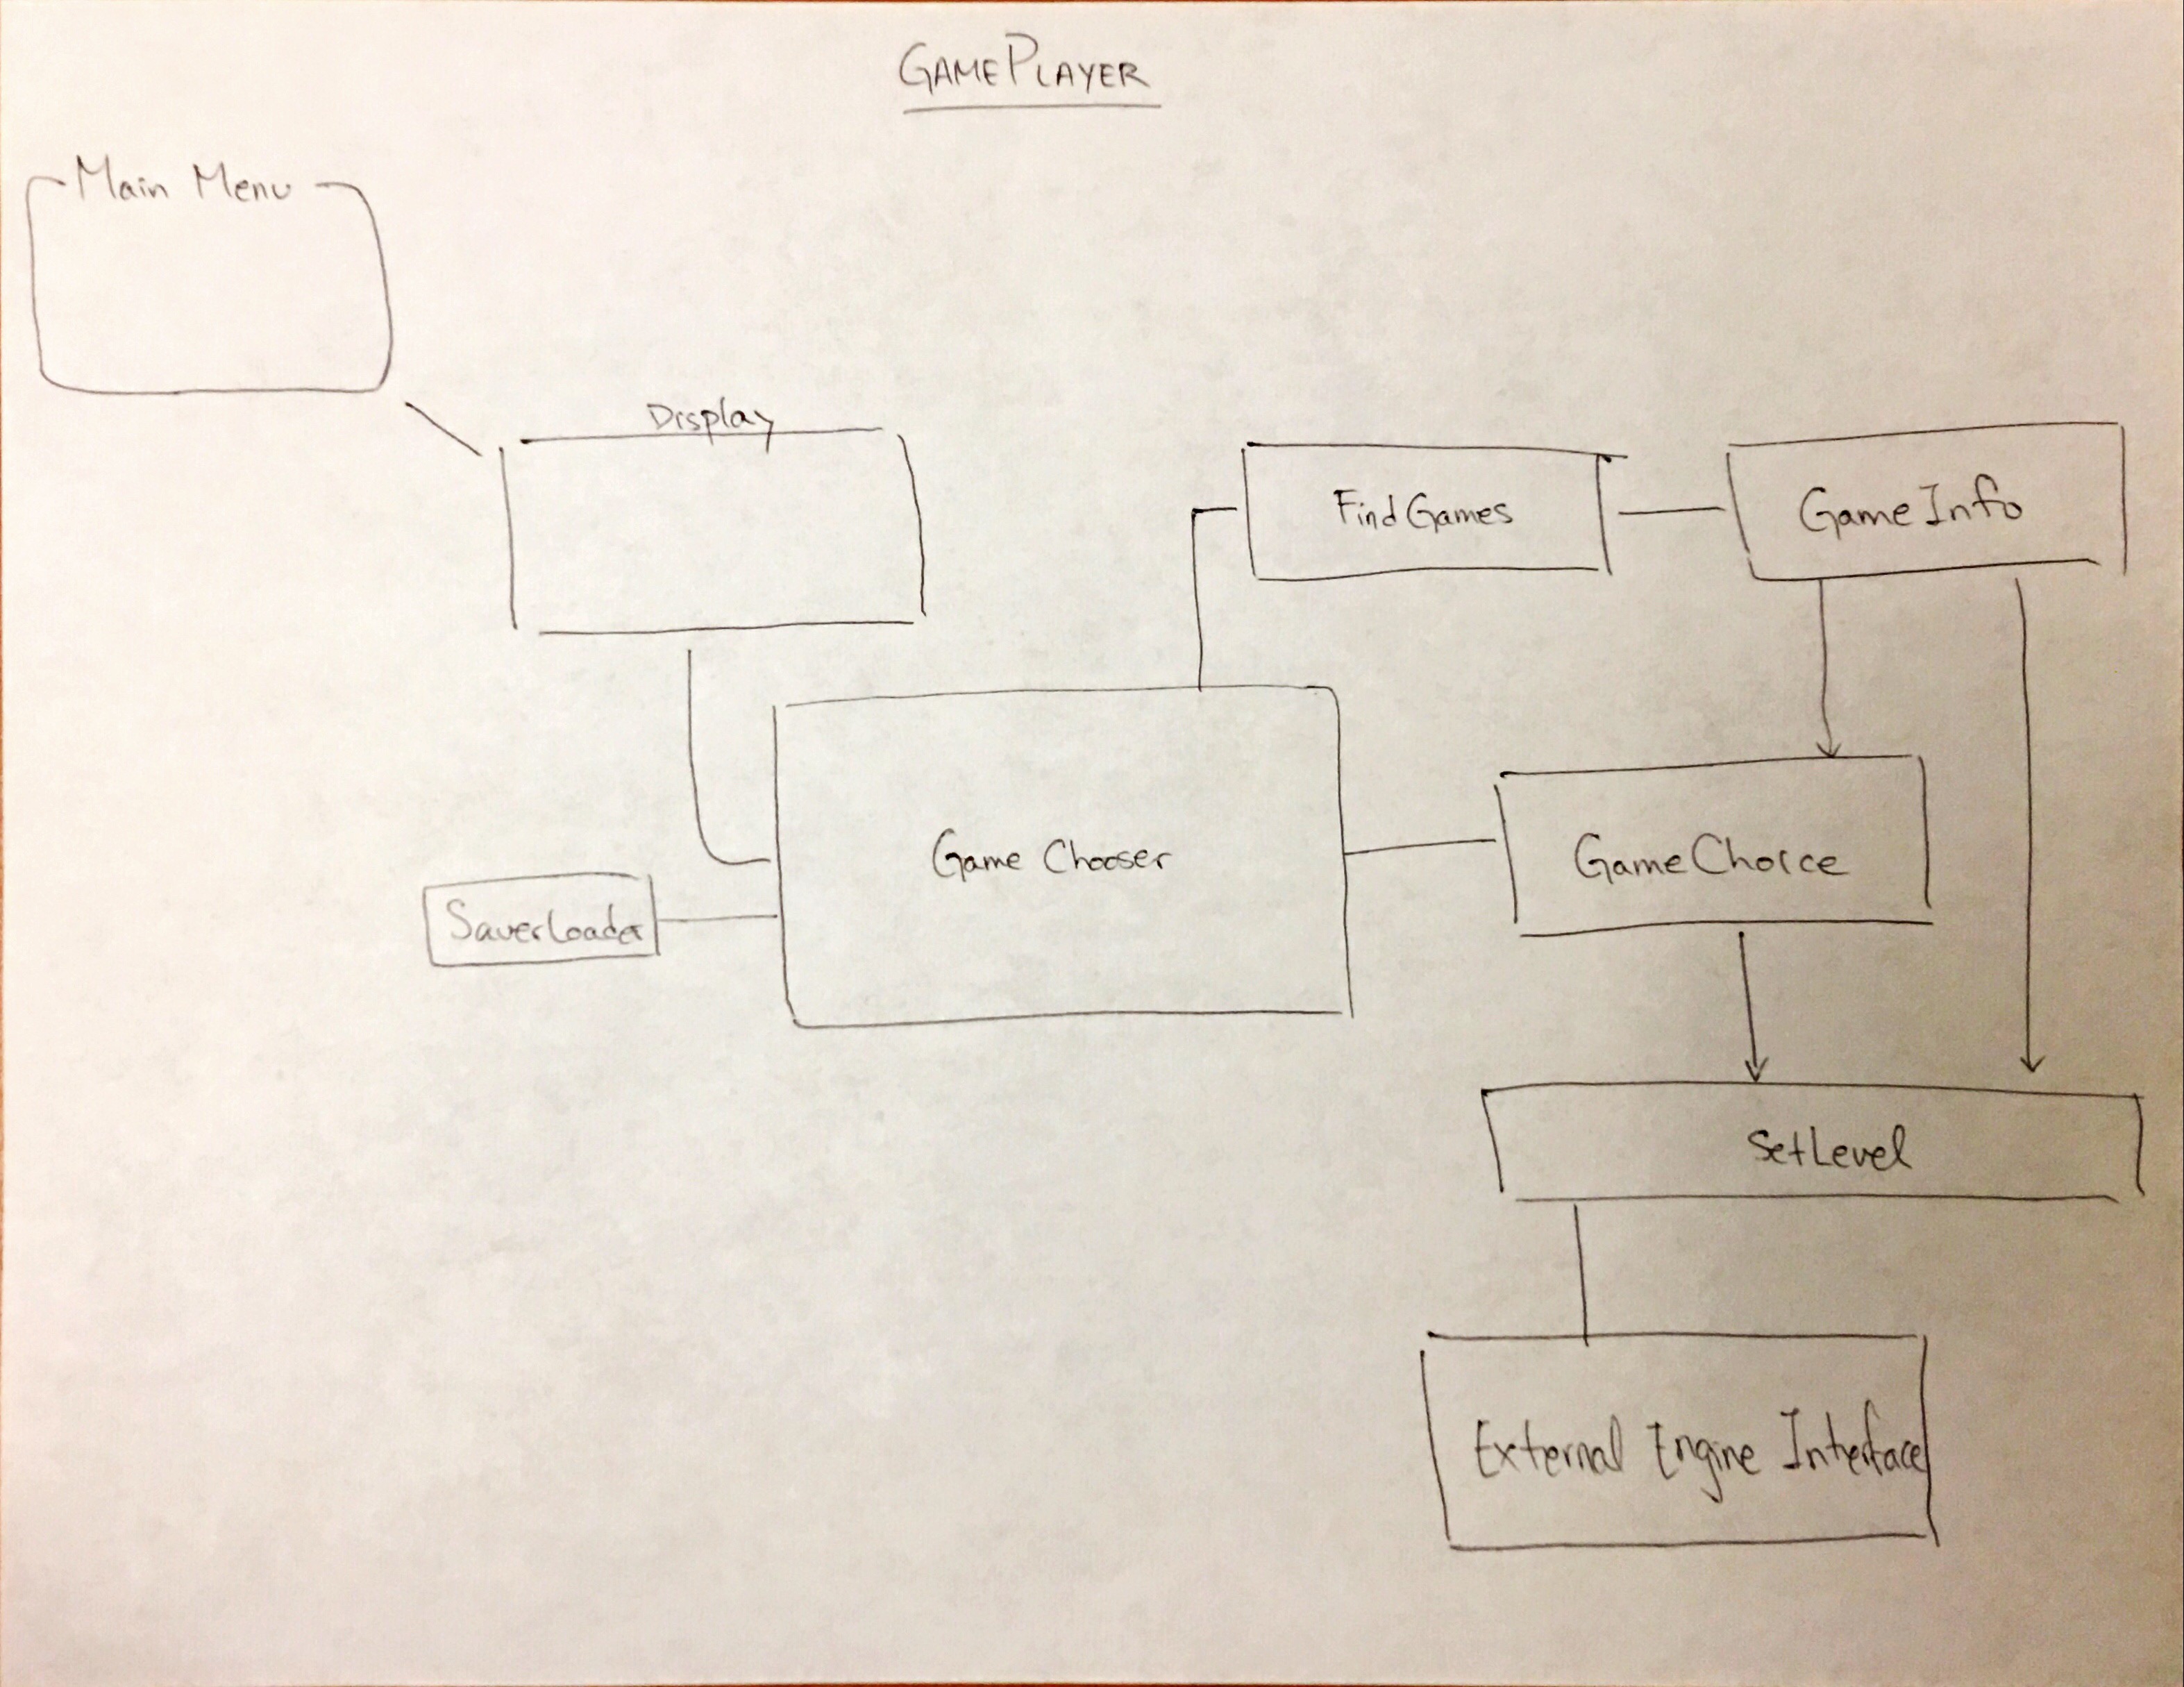 GAMEPLAYER
Main Menu
Display
FindGames
GameInfo
Game Chooser
GameChoice
SaverLoader
SetLevel
External Engine Interface